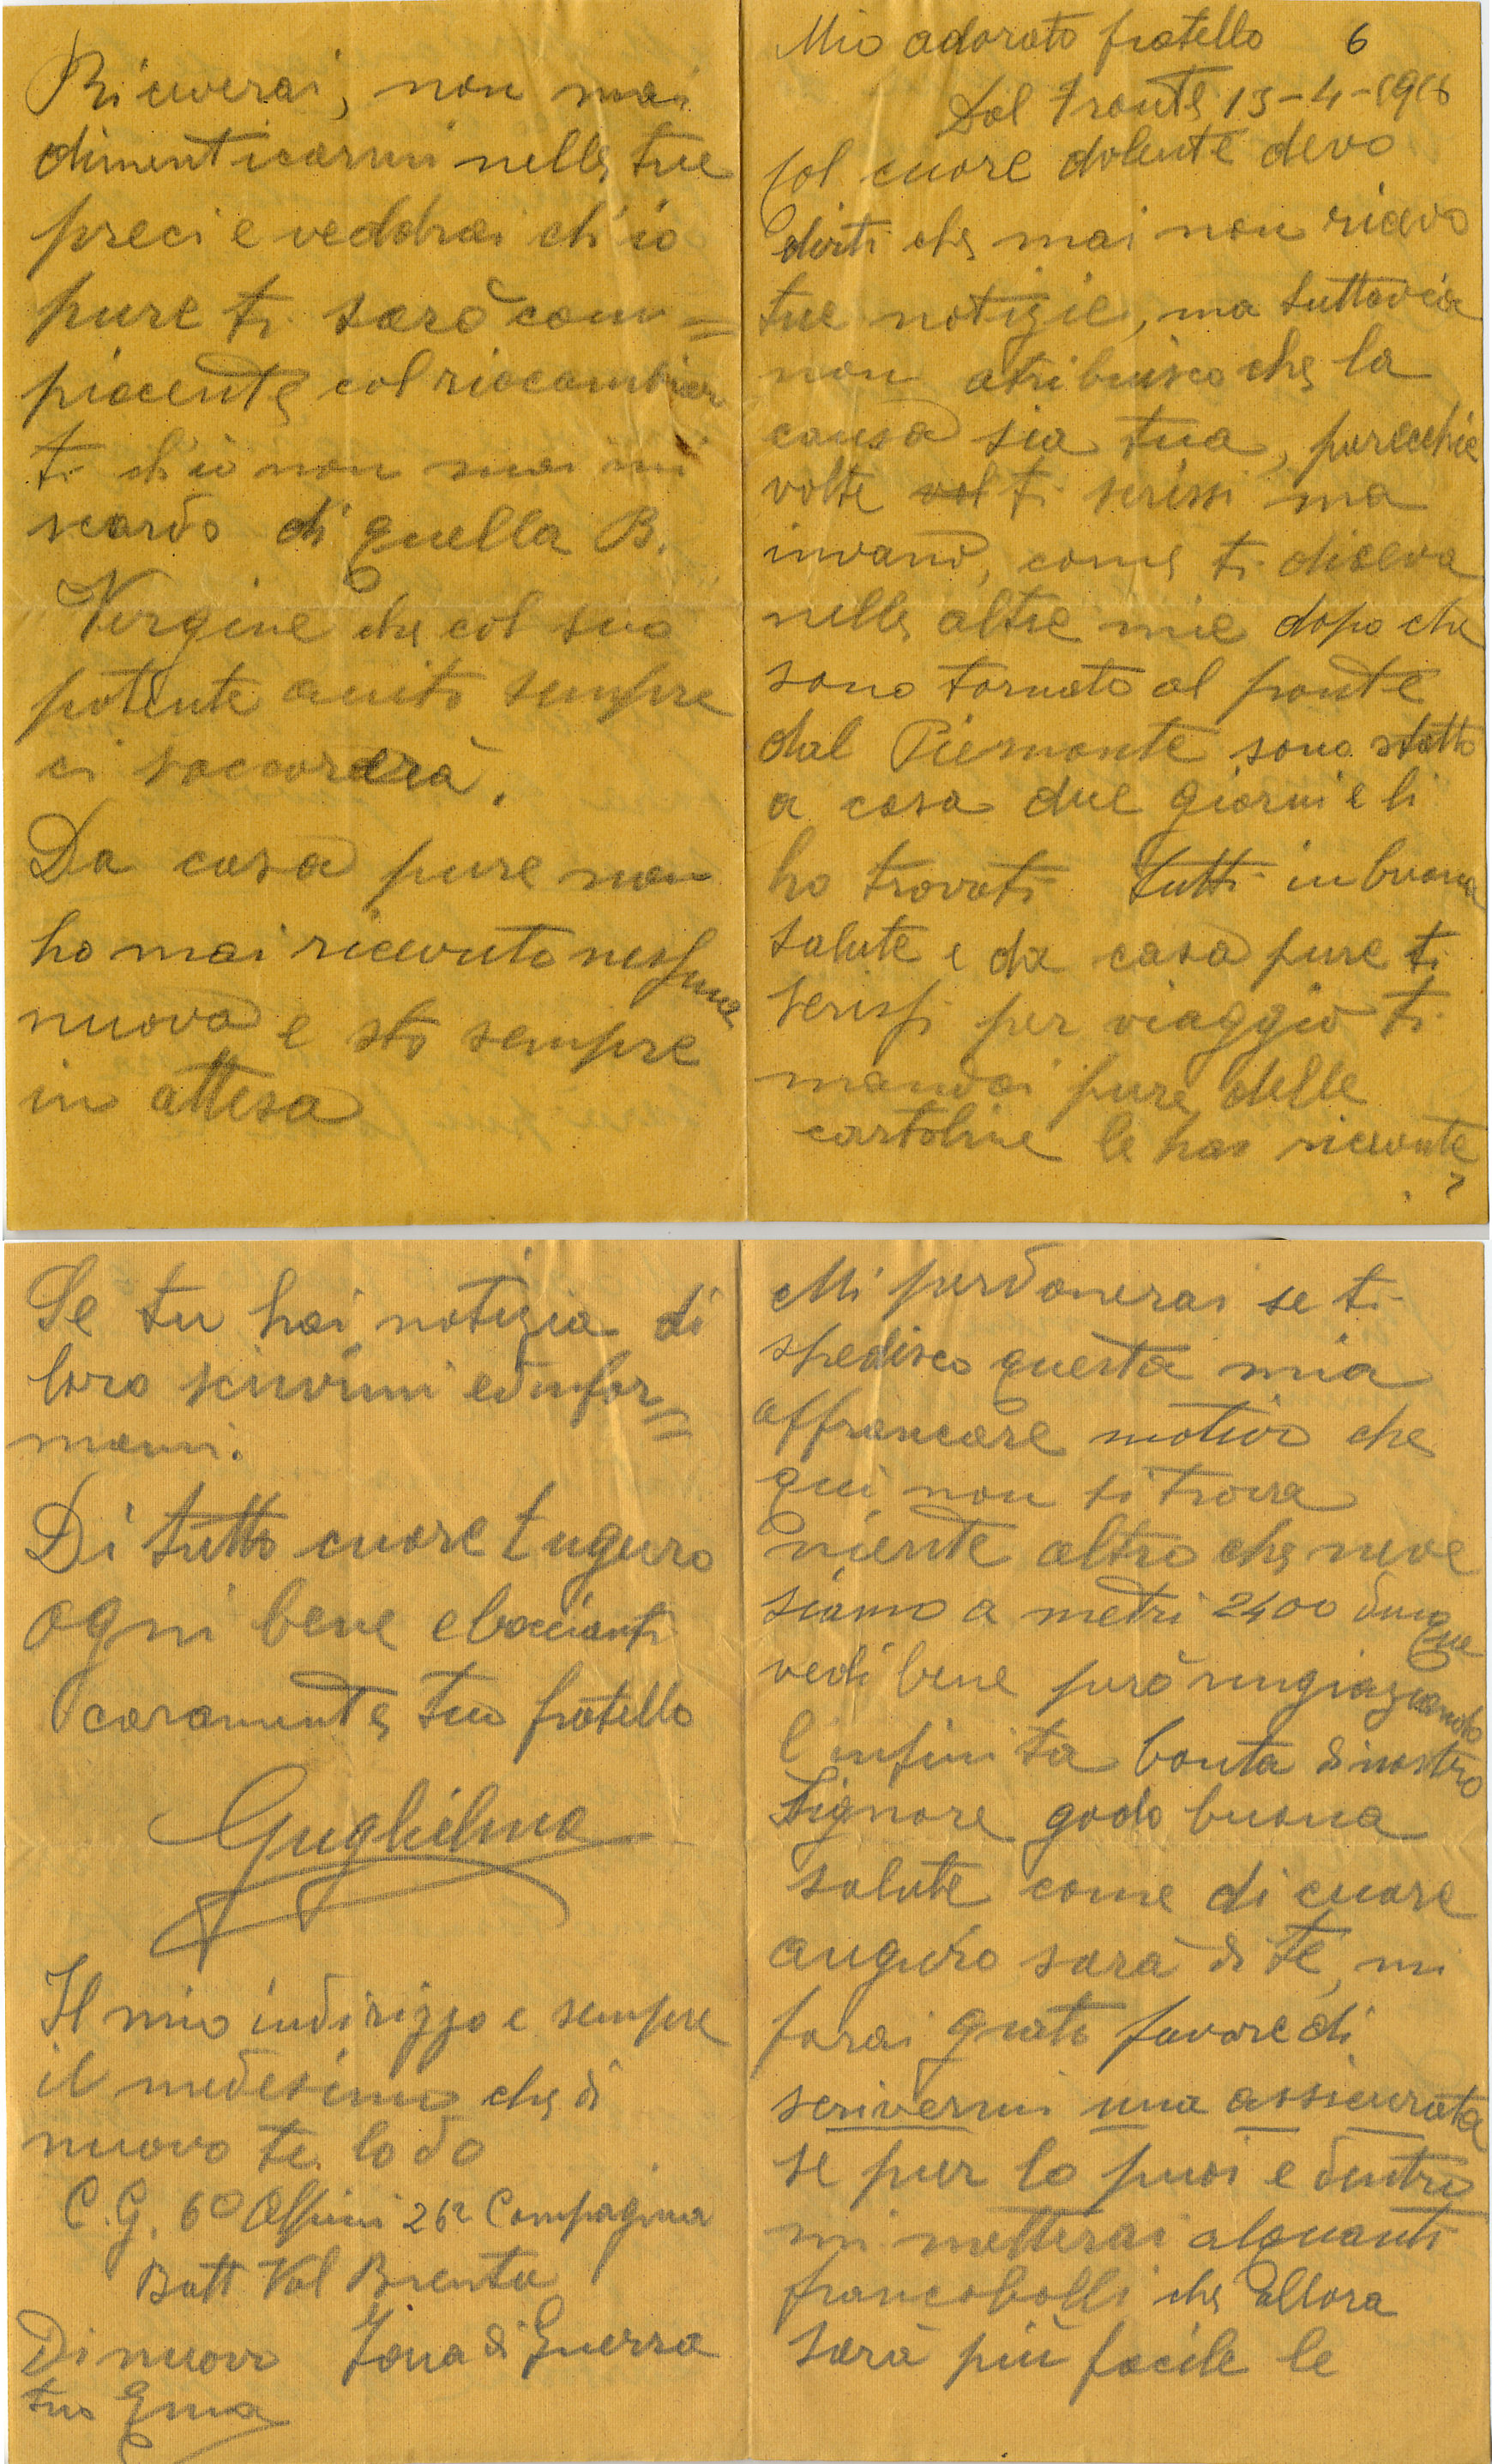 Mio adorato fratello 6
Dal fronte 15-4-1916
Col cuore dolente devo
dirti che mai non ricevo
tue notizie, ma tuttavia
non atribuisco che la
causa sia tua, parecchie
volte vol ti scrissi ma
invano, come ti diceva
nelle altre mie dopo che
sono tornato al fronte
dal Piemonte sono statto
a casa due giorni e li
ho trovati tutti in buona
salute e da casa pure ti
scrissi per viaggio ti
mandai pure delle
cartoline le hai ricevute
?
Mi perdonerai se ti
spedisco questa mia
affrancare motivo che
qui non si trova
niente altro che neve
siamo a metri 2400 dunque
vedi bene però ringraziando
l infinita bonta di nostro
Signore godo buona
salute come di cuore
auguro sarà di te, mi
farai grato favore di
scrivermi una assicurata
se pur lo puoi e dentro
mi metterai alquanti
francobolli che allora
sarà più facile le
Riceverai, non mai
dimenticarmi nelle tue
preci e veddrai ch'io
pure ti sarò com=
piacente col riacambiar
ti ch'io non mai mi
scardo di quella B.
Vergine che col suo
potente aiuto sempre
ci soccorerà.
Da casa pure non
ho mai ricevuto nessuna
nuova e sto sempre
in attesa
Se tu hai notizia di
loro scrivimi ed infor=
mami.
Di tutto cuore t uguro
ogni bene e baccianti
caramente tuo fratello
Guglielmo
Il mio indirizzo e sempre
il medesimo che di
nuovo te lo do
C.G. 6º Alpini 26ª Compagnia
Batt Val Brenta
Di nuovo Zona di Guerra
tuo Gmo